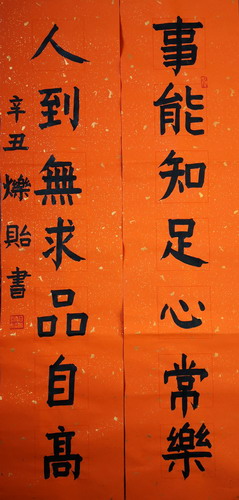 事能知足心常樂
人到無求品自高
辛丑 爍貽書